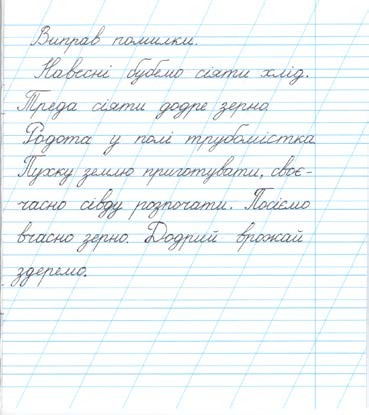 Виправ помилки.
Навесні бубемо сіяти хлід.
Треда сіяти додре зерно
Родота у полі трубомістка
Пухку землю приготувати, своє-
часно сівду розпочати. Посіємо
вчасно зерно. Додрий врожай
здеремо.